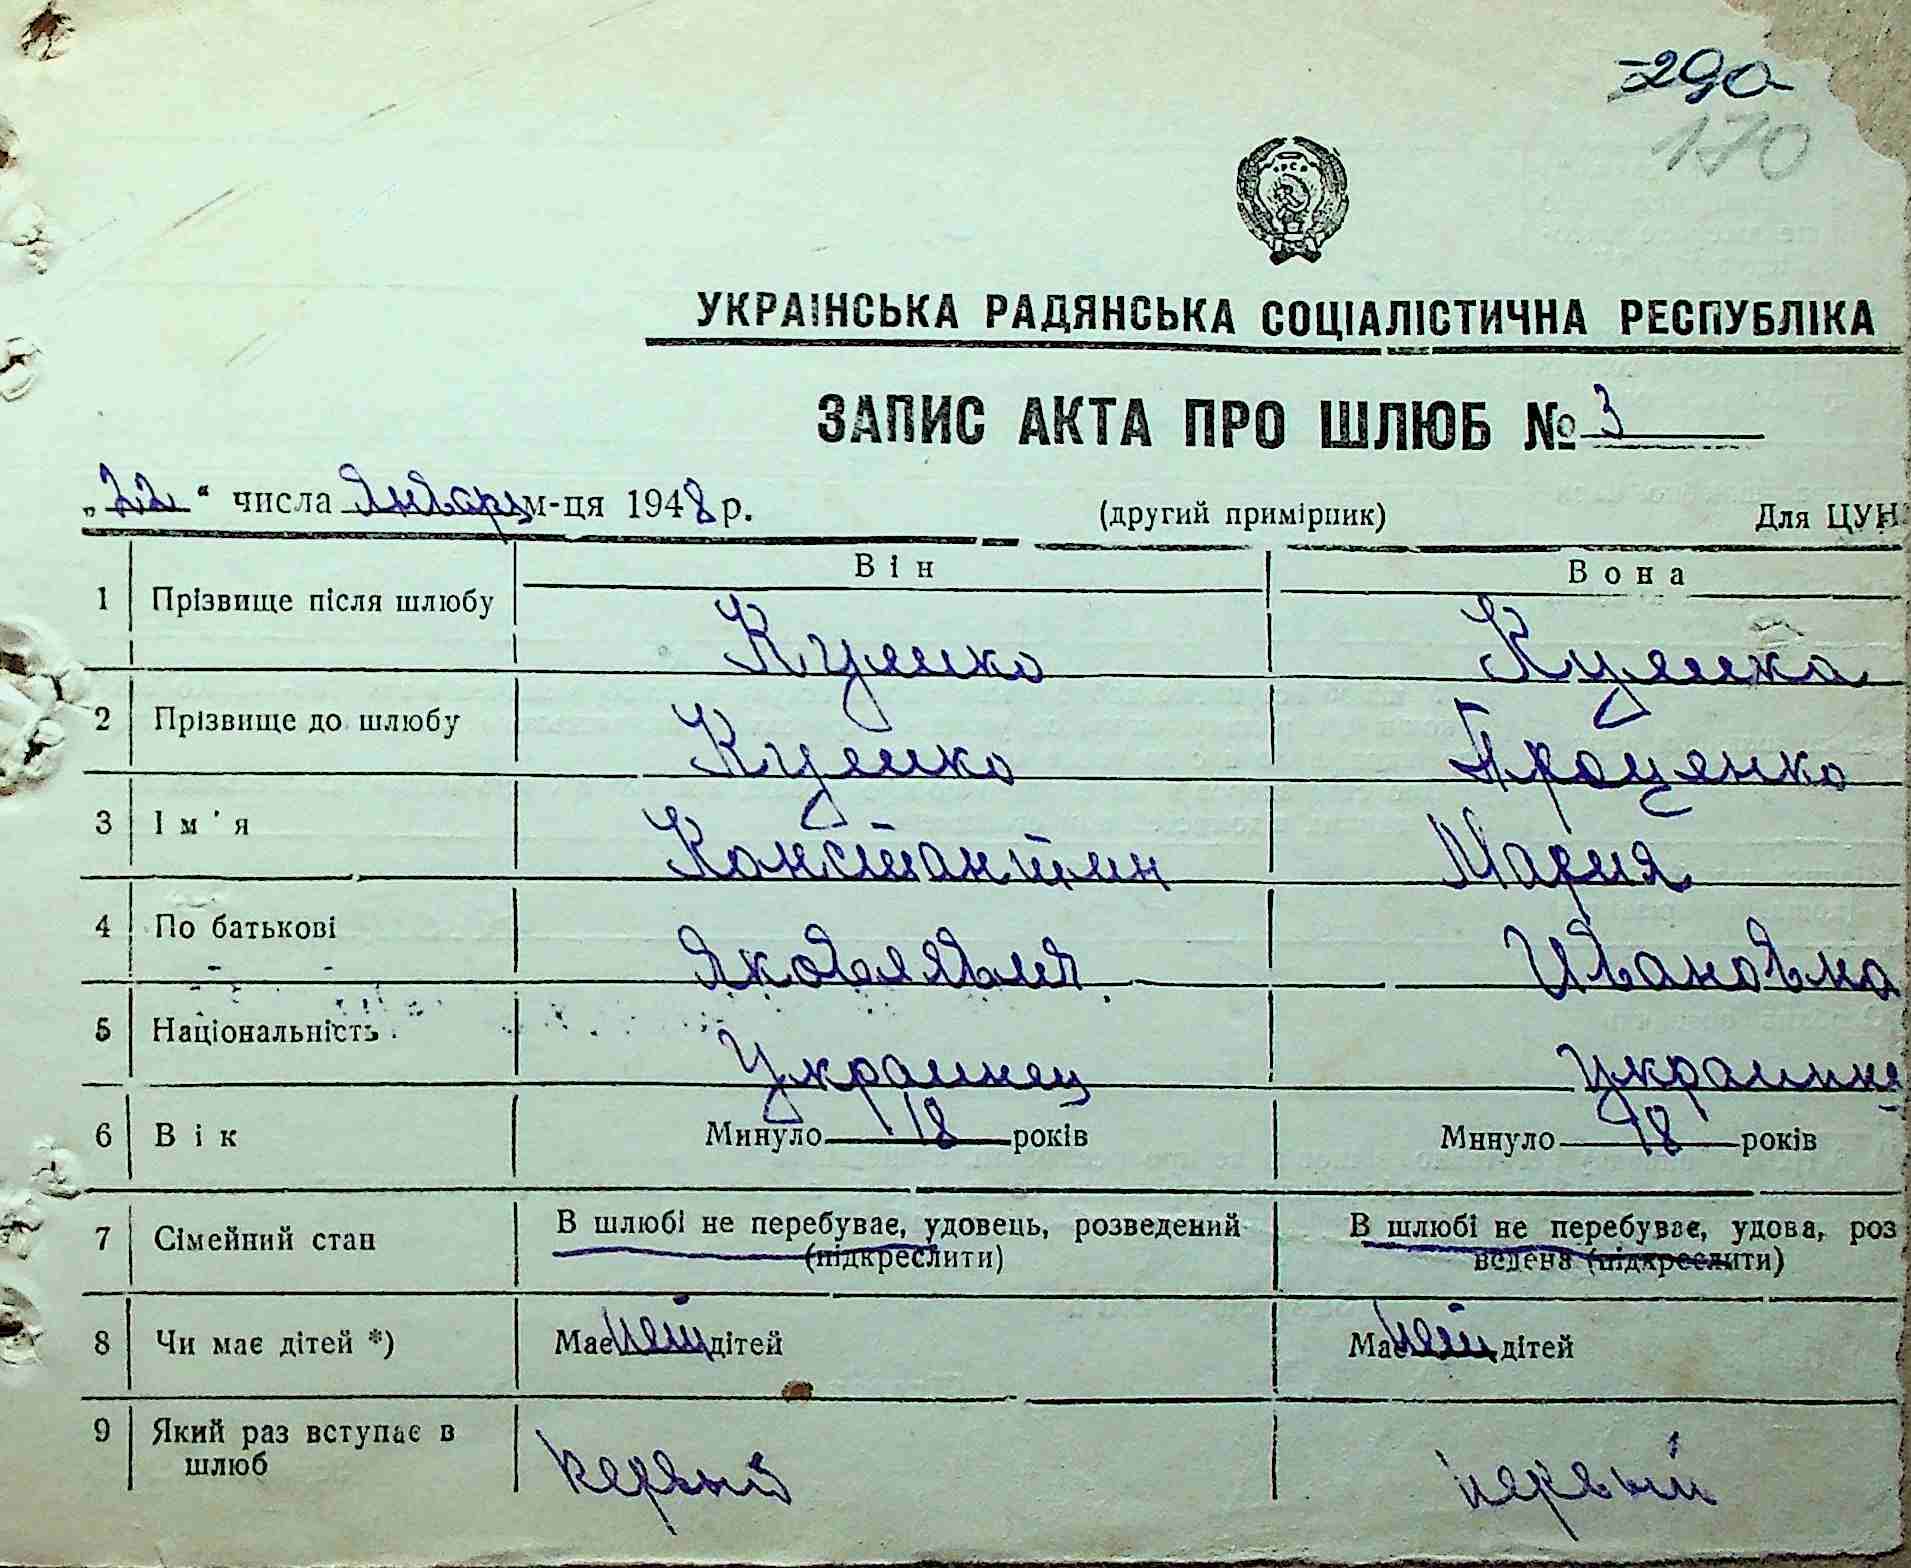 290
170
УКРАЇНСЬКА РАДЯНСЬКА СОЦІАЛІСТИЧНА РЕСПУБЛІКА
ЗАПИС АКТА ПРО ШЛЮБ № 3
„22“ числа января м-ця 1948 р. (другий примірник) Для ЦУН
Він Вона
1 Прізвище після шлюбу
2 Прізвище до шлюбу Проценко
3 Ім'я Константин Мария
4 По батькові Яковлевич Ивановна
5 Національність Украинец украинк
6 Вік Минуло 18 років Минуло 18 років
7 Сімейний стан В шлюбі не перебуває, удовець, розведений В шлюбі не перебуває, удова, роз
(підкреслити) ведена (підкреслити)
8 Чи має дітей *) Має нет дітей Має нет дітей
9 Який раз вступає в
шлюб первый первый